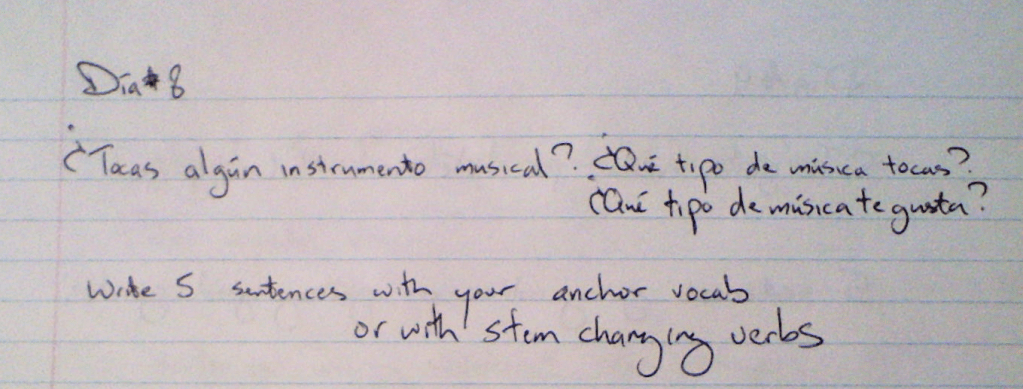 Día #8
¿Tocas algún instrumento musical? ¿Qué tipo de música tocas?
¿Qué tipo de música te gusta?
Write 5 sentences with your anchor vocab
or with stem changing verbs